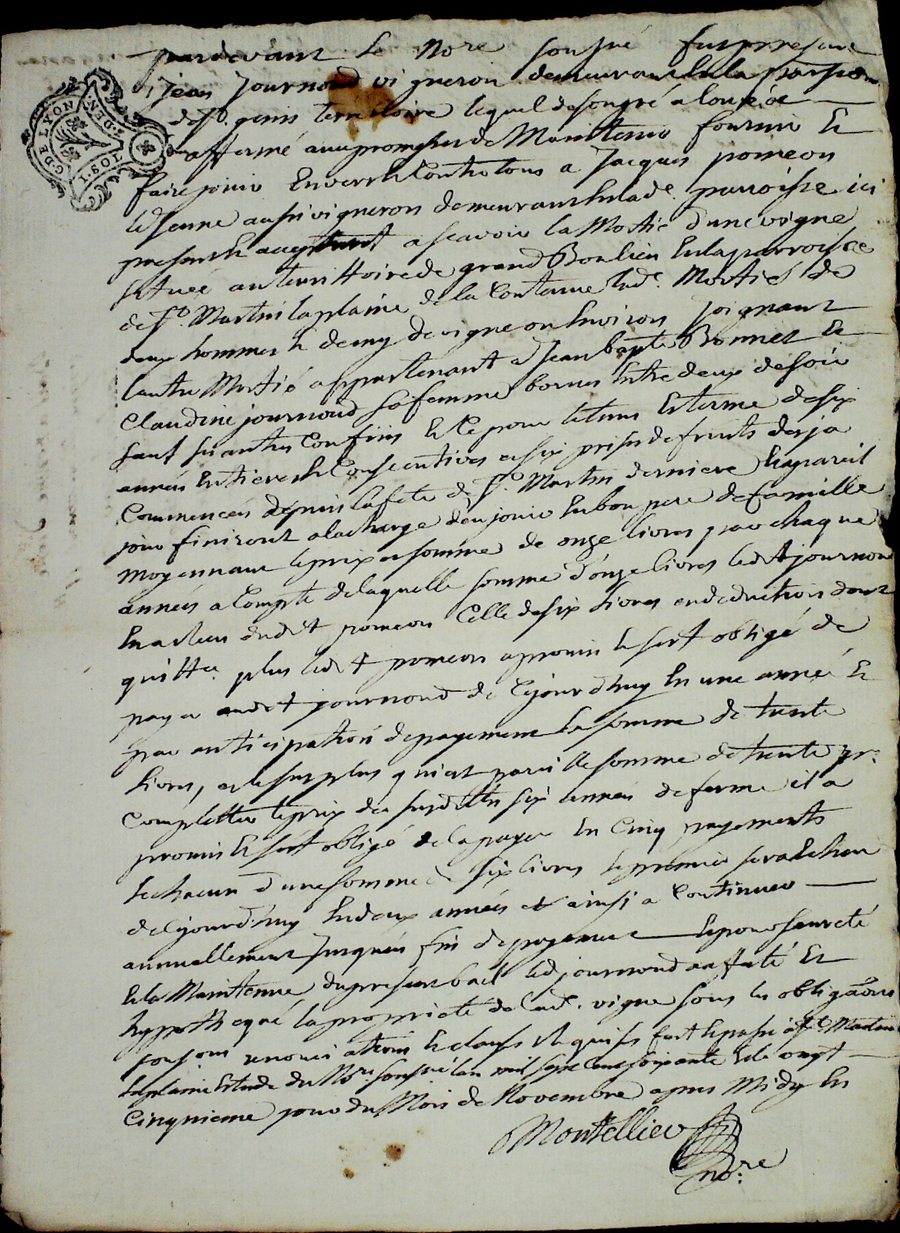 G. DE LYON
I. SOL. 8. DEN.
pardevant le No.re sousigné fut present
jean journoud vigneron demeurant en la paroisse
de St. genis terre noire lequel de son gré a loué et
affermé avec promesse de Maintenir fournir Et
faire jouir Envers Et Contre tous a Jacques pomeon
le jeune aussi vigneron demeurant en lad. parroisse ici
present Et acceptant a scavoir la Moitié d'une vigne
située au territoire de grand Bonlieu En la parroisse
de St. Martin laplaine de la Contenue lad. Moitié de
deux hommes Et demy de vigne ou Environ joignant
l'autre Moitié appartenant a Jean bapte. Bonnet Et
Claudine journoud sa femme bornes Entre deux de soir
sauf ses autres Confins Et Ce pour le tems Et terme de six
années Entieres Et Consecutives et six prises de fruits desja
Commencées depuis la fete de St. Martin derniere Et a pareil
jour finiront a la charge d'en jouir En bon pere de famille
Moyennant le prix et somme de onze livres par chaque
années a Compte de laquelle somme d'onze livres ledt journoud
En a reçu dudt pomeon Celle de six livres en deduction dont
quitte. plus ledt pomeon a promis Et s'est obligé de
payer audt journoud de Cejourd'huy En une année Et
par anticipation de payement la somme de trente
livres, et le surplus qui est pareille somme de trente pr.
Completter le prix des susdittes six années de ferme il a
promis Et s'est obligé de la payer En Cinq payements
Et chacun d'une somme de six livres le premier sera Echeu
de Cejourd'huy En deux années et ainsi a Continuer
annuellement jusques fin de payement Et pour seureté
Et la Maintenue du present bail led. journoud a affecté Et
hypothequé la propriete de lad. vigne sous les obligaons
renonciations Et clauses Et quis fait Et passé à St. Martin
Laplaine Etude du No.re sousigné l'an mil sept cent soixante Et dix sept
Cinquieme jour du Mois de Novembre apres Midy Et
Montellier
no.re